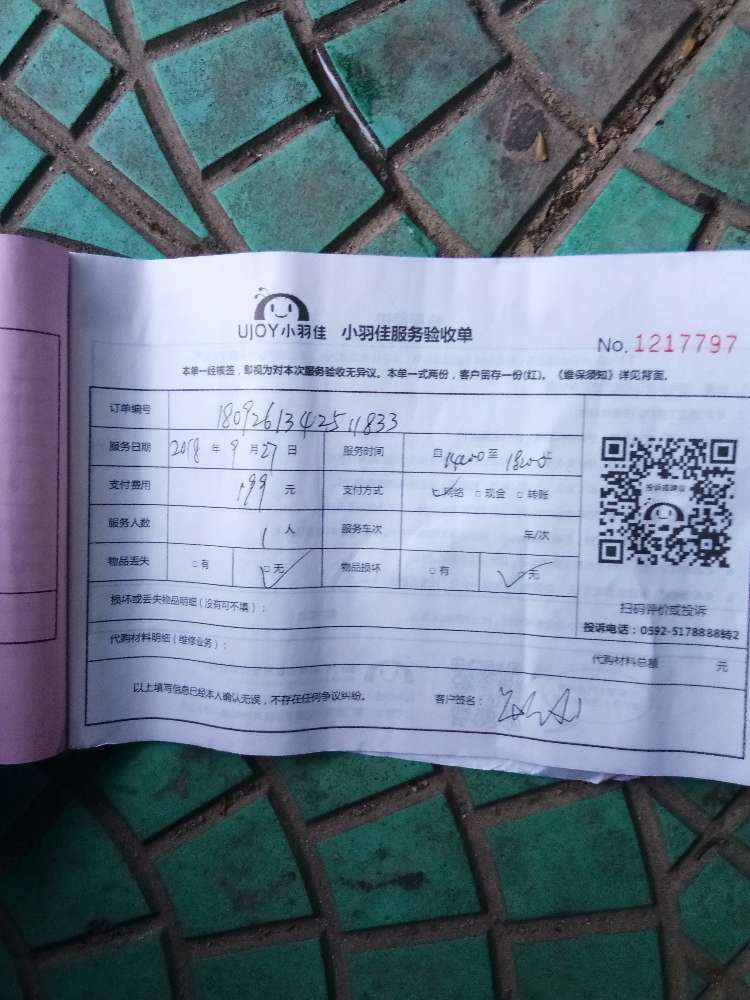 UJOY小羽佳 小羽佳服务验收单
No. 1217797
本单一经核签，影视为对本次服务验收无异议。本单一式两份，客户留存一份(红)。《维保须知》详见背面。
订单编号 1809261342511833
服务日期 2018 年 9 月 27 日 服务时间 自 14:00 至 18:00
支付费用 199 元 支付方式 □网络 □现金 □转账
服务人数 1 人 服务车次 车/次
物品丢失 □有 □无 物品损坏 □有 □无
投诉或建议
扫码评价或投诉
投诉电话：0592-5178888转2
损坏或丢失物品明细（没有可不填）：
代购材料明细（维修业务）： 代购材料总额： 元
以上填写信息已经本人确认无误，不存在任何争议纠纷。 客户签名：